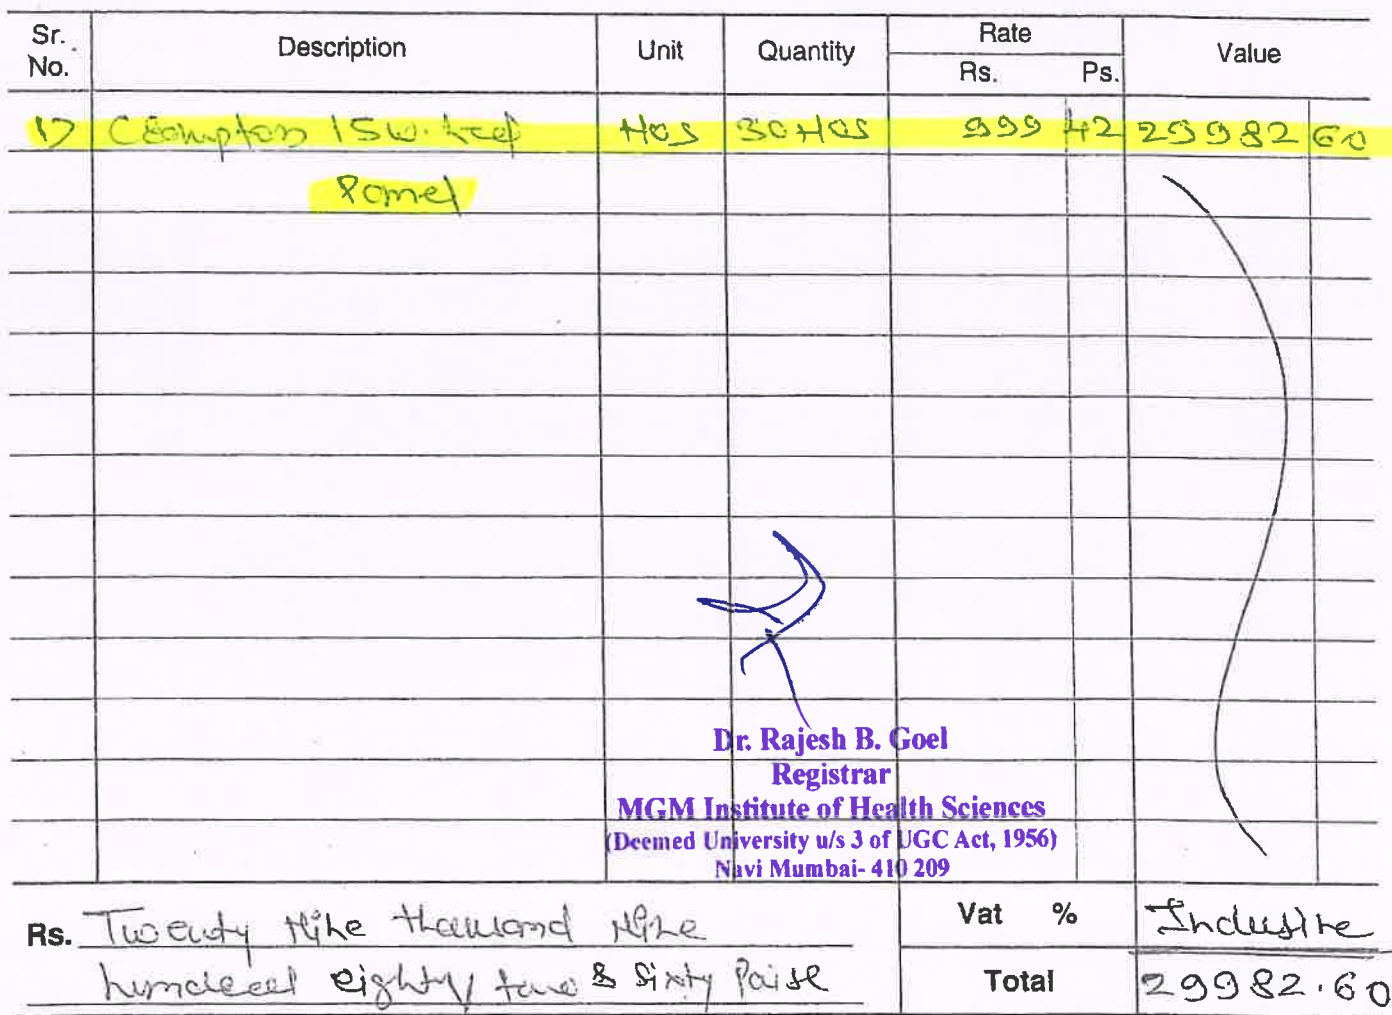 Sr. No. Description Unit Quantity Rate Value
Rs. Ps.
1) Crompton 15w. Led Nos 30 Nos 999 42 29982 60
Panel
Dr. Rajesh B. Goel
Registrar
MGM Institute of Health Sciences
(Deemed University u/s 3 of UGC Act, 1956)
Navi Mumbai- 410 209
Rs. Twenty Nine thousand Nine Vat % Inclusive
hundred eighty two & Sixty Paise Total 29982.60